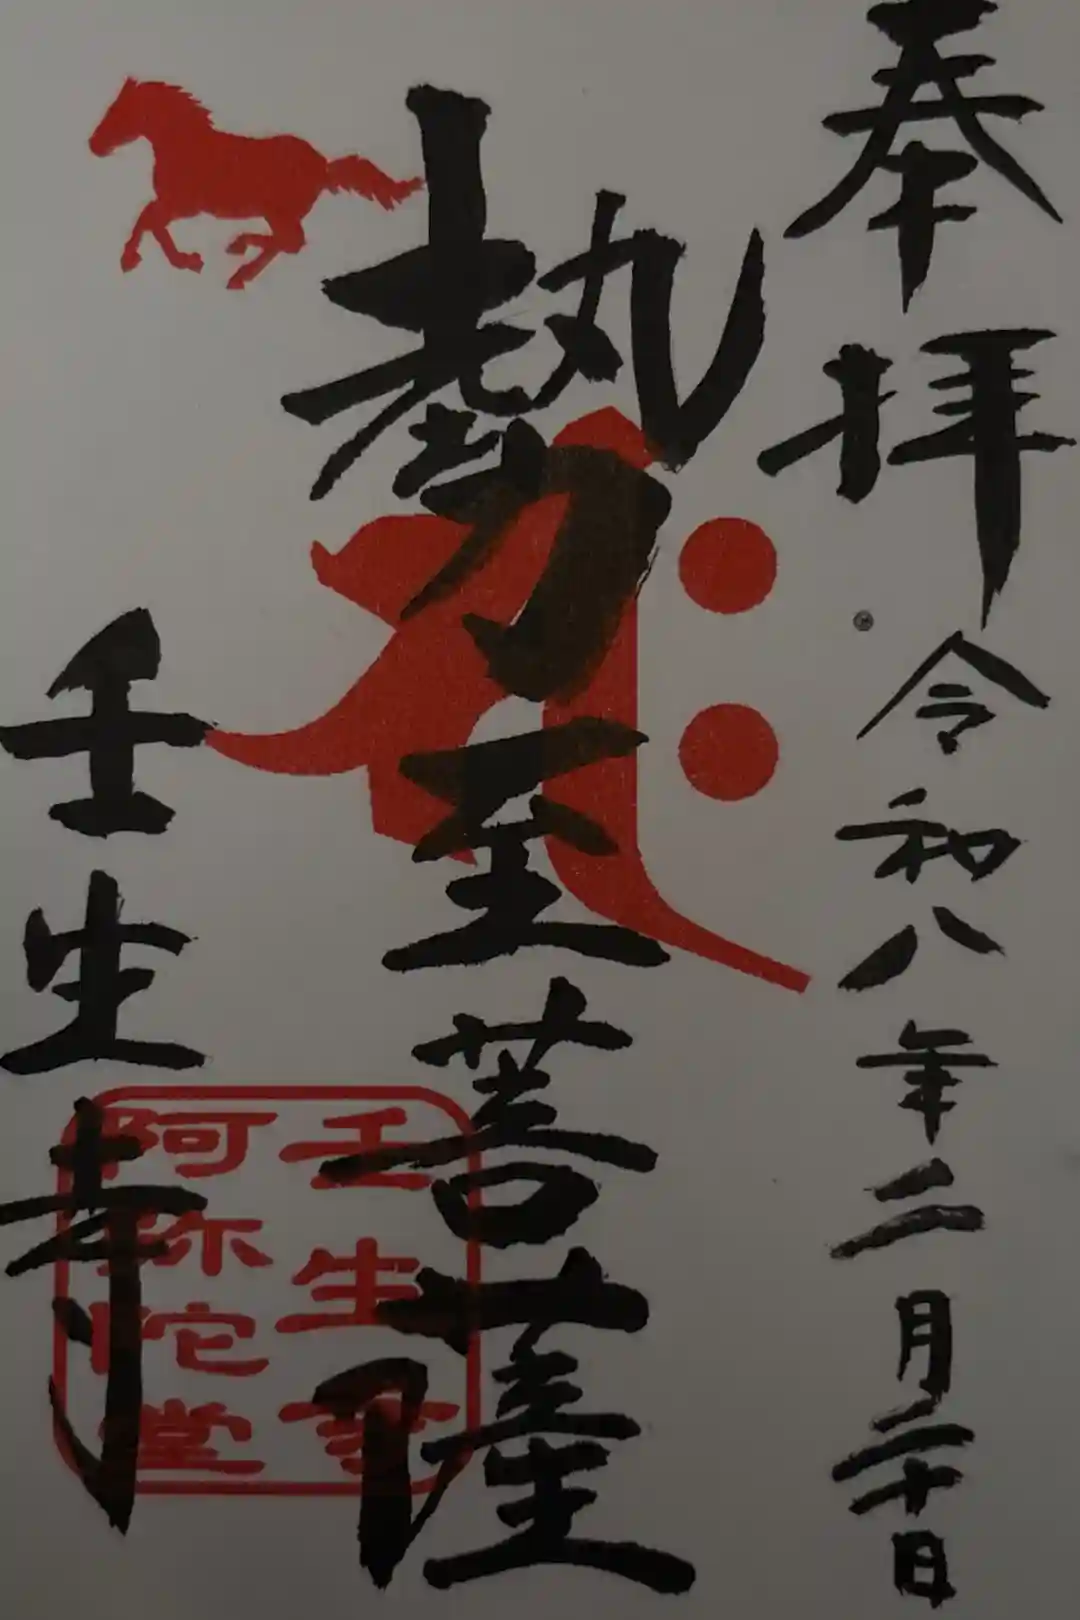 奉拝
令和八年二月二十日
勢至菩薩
壬生寺
壬生寺
阿弥陀堂